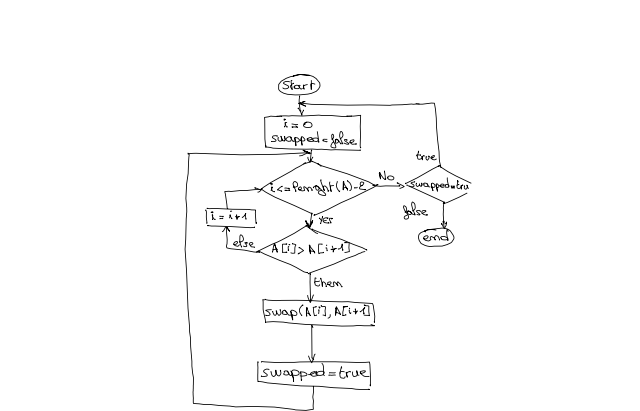 Start
i = 0
swapped = false
i <= lenght(A)-2
No
swapped = tru
true
false
end
yes
i = i+1
else
A[i] > A[i+1]
then
swap(A[i], A[i+1]
swapped = true